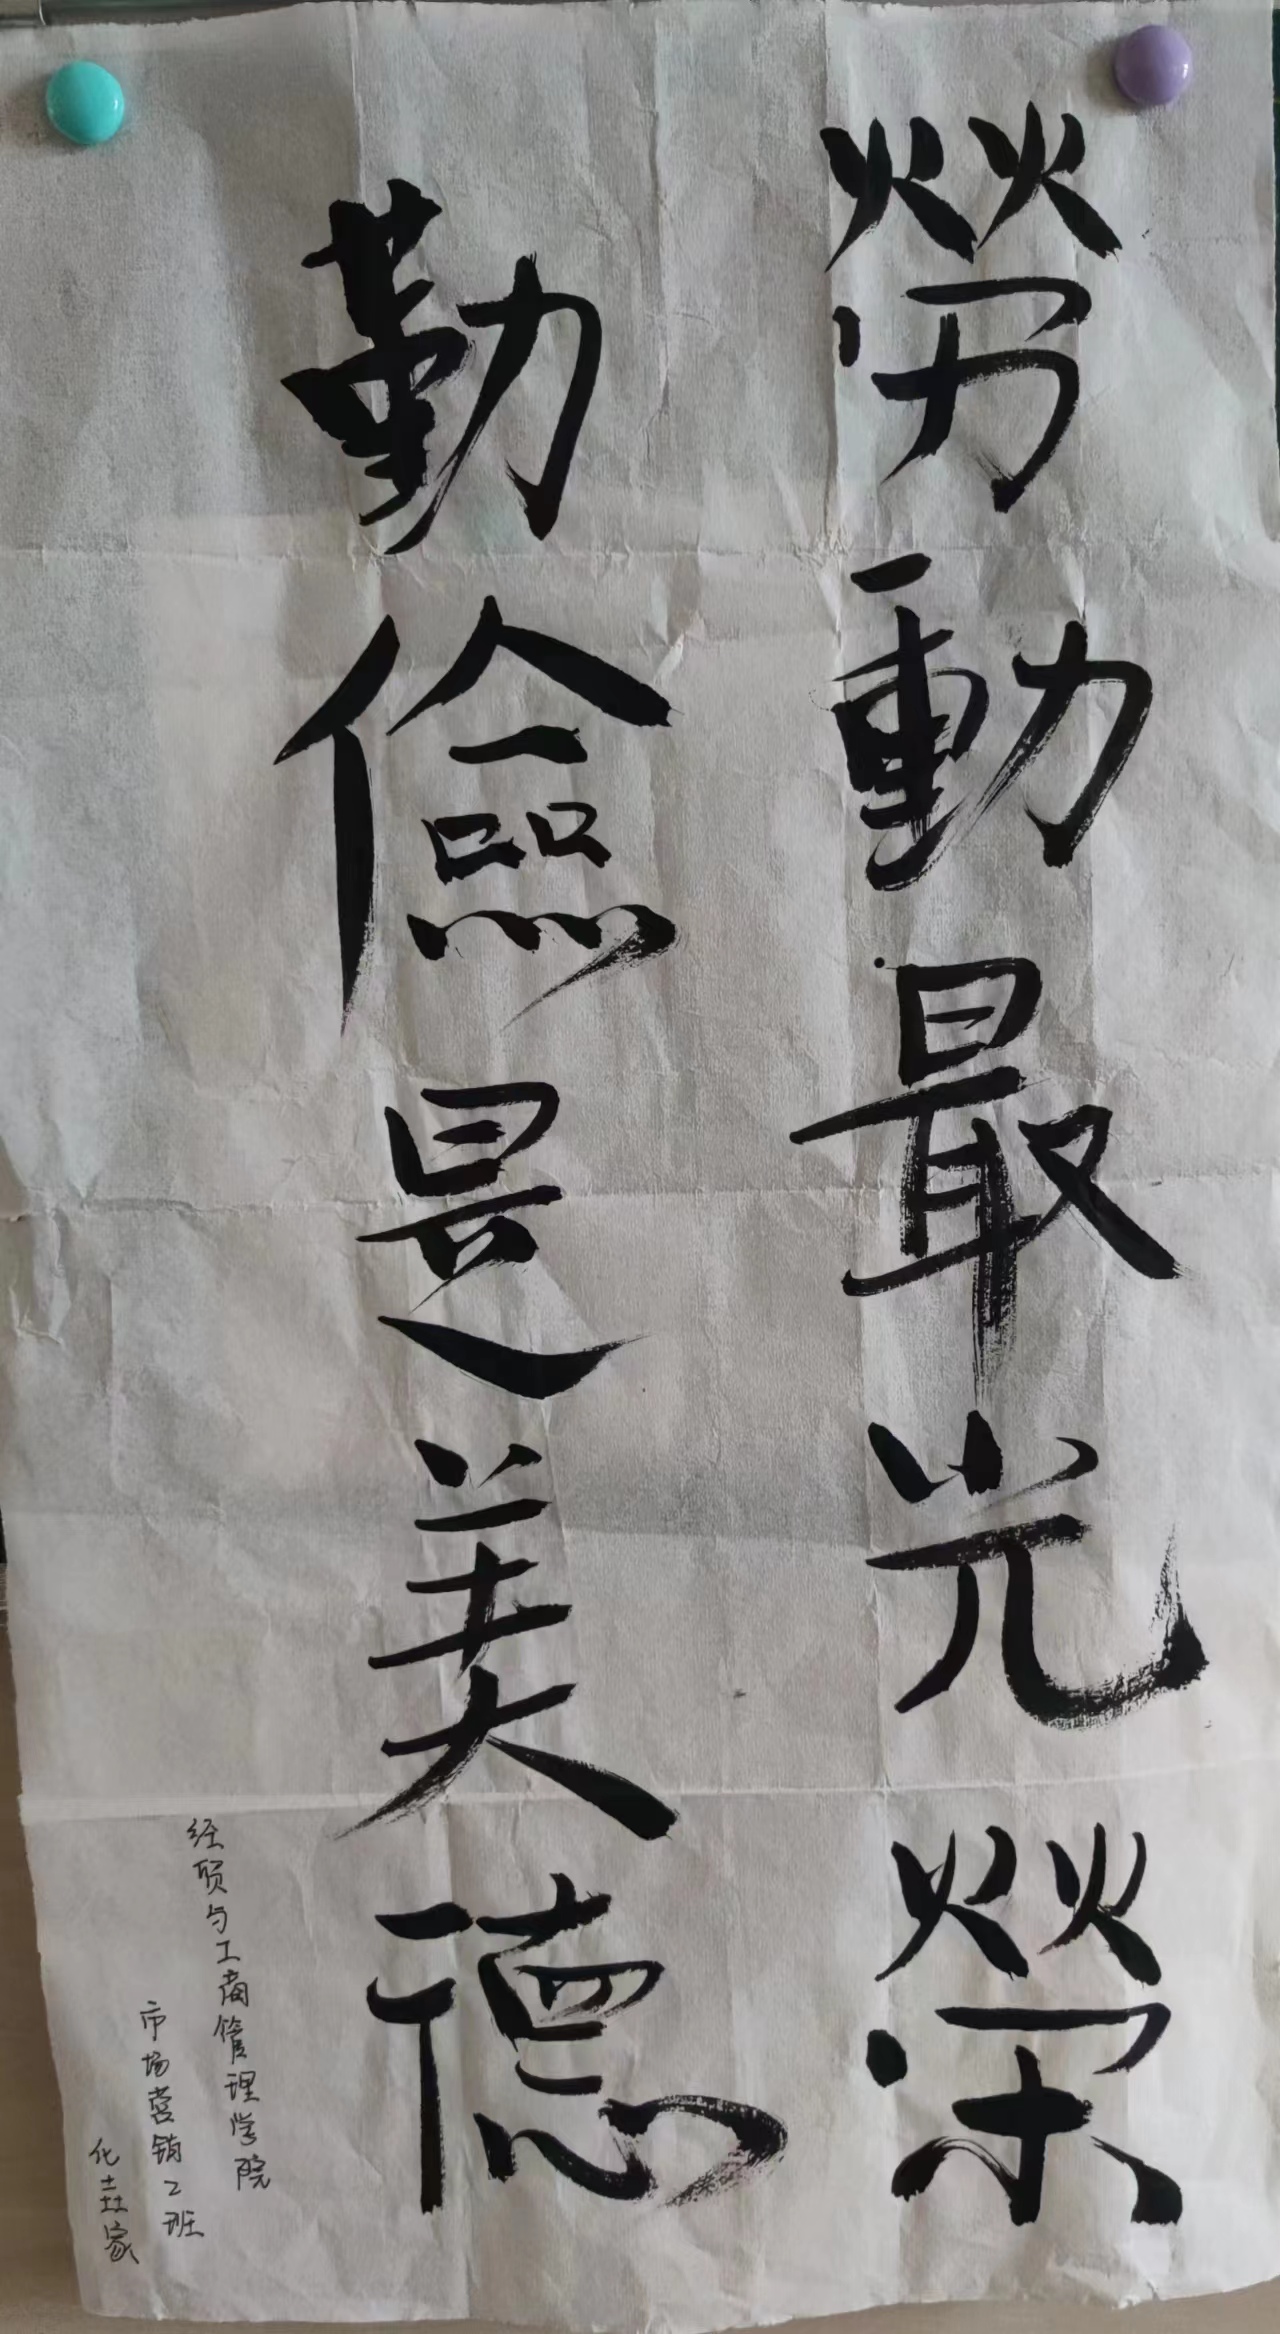 勞動最光榮
勤儉是美德
经贸与工商管理学院
市场营销2班
化壵家